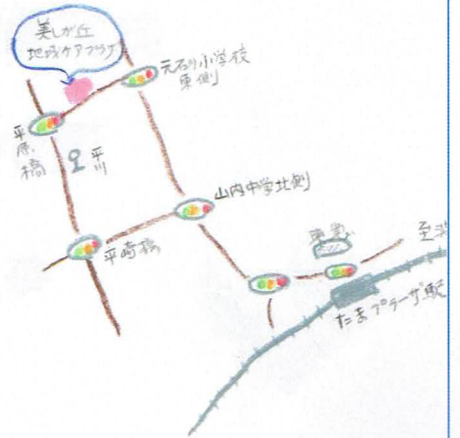 美しが丘
地域ケアプラザ
元石川小学校
東側
平原橋
平川
山内中学北側
平崎橋
東急
至渋
たまプラーザ駅